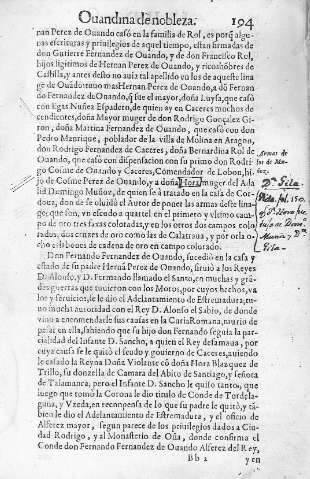 Ouandina de nobleza. 194
nan Perez de Ouando casó en la familia de Rol, es porq̃ algu-
nas escrituras y priuilegios de aquel tiempo, estan firmadas de
don Gutierre Fernandez de Ouando, y de don Francisco Rol,
hijos legitimos de Hernan Perez de Ouando, y ricoshõbres de
Castilla, y antes desto no auia tal apellido en los de aqueste lina
ge de Ouãdo tuuo mas Hernan Perez de Ouando, a dõ Fernan
do Fernandez de Ouando, q̃ fue el mayor, doña Luysa, que casò
con Egas Nuñez Espadero, de quien ay en Caceres muchos de
cendientes, doña Mayor muger de don Rodrigo Gonçalez Gi-
ron, doña Martina Fernandez de Ouando, que casò con don
Pedro Manrique, poblador de la villa de Molina en Aragon,
don Rodrigo Fernandez de Caceres, doña Bernardina Rol de
Ouando, que casò con dispensacion con su primo don Rodri
go Cosme de Ouando y Caceres, Comendador de Lobon, hi-
jo de Cosme Perez de Ouando, y a doña Flora muger del Ada
lid Domingo Muñoz, de quien se à tratado en la casa de Cor-
doua, don de se oluidò el Autor de poner las armas deste lina-
ge, que son, vn escudo a quartel en el primero y vltimo cam-
po de oro tres faxas coloradas, y en los otros dos campos colo
rados, dos cruzes de oro como las de Calatraua, y por orla o-
cho eslabones de cadena de oro en campo colorado.
Don Fernando Fernandez de Ouando, sucedió en la casa y
estado de su padre Hernã Perez de Ouando, siruiò a los Reyes
D. Alonso, y D. Fernando llamado el Santo, en muchas y grã-
des guerras que tuuieron con los Moros, por cuyos hechos, va
lor y seruicios, le dio el Adelantamiento de Estremadura, tu-
uo mucha autoridad con el Rey D. Alonso el Sabio, de donde
vino a encomendarle sus causas en la Curia Romana, murio de
pesar en ella, sabiendo que su hijo don Fernando seguia la par-
cialidad del Infante D. Sancho, a quien el Rey desamaua, por
cuya causa se le quitò el feudo y gouierno de Caceres, auiendo
le casado la Reyna Doña Violante cõ doña Flora Blazquez de
Trillo, su donzella de Camara del Abito de Santiago, y señora
de Talamanca, pero el Infante D. Sancho le quito tanto, que
luego que tomò la Corona le dio titulo de Conde de Tordela-
guna, y Vzeda, en recompensa de lo que su padre le quitò, y tã-
bien le dio el Adelantamiento de Estremadura, y el oficio de
Alferez mayor, segun parece de los priuilegios dados a Ciu-
dad Rodrigo, y al Monasterio de Oña, donde confirma el
Conde don Fernando Fernandez de Ouando Alferez del Rey,
Bb 2 y en
Armas de
los de Mu-
ñoz.
Dª Gila